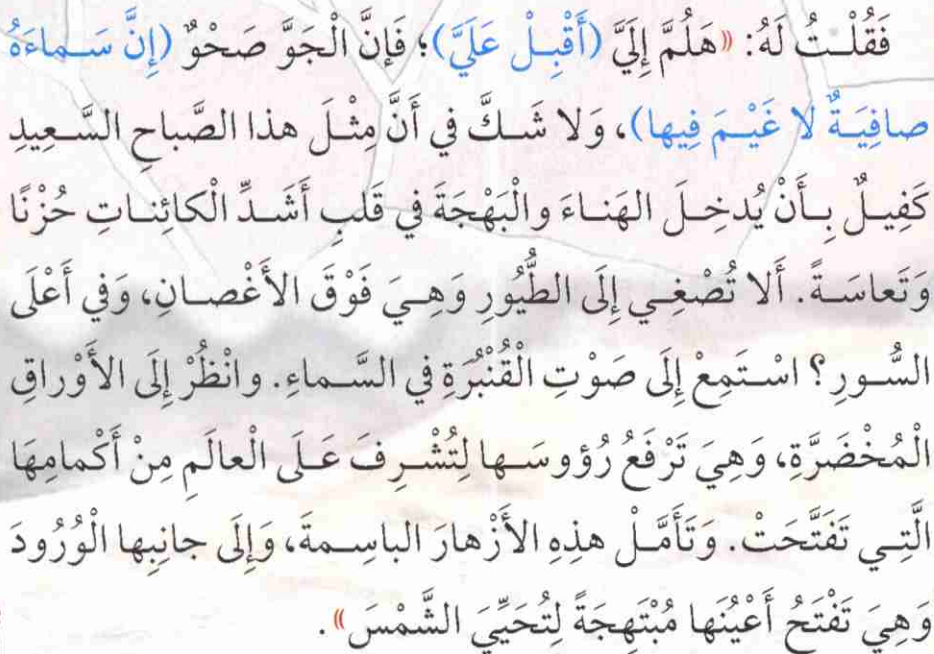 فَقُلْتُ لَهُ: «هَلُمَّ إِلَيَّ (أَقْبِلْ عَلَيَّ)؛ فَإِنَّ الْجَوَّ صَحْوٌ (إِنَّ سَماءَهُ
صافِيَةٌ لا غَيْمَ فِيها)، وَلا شَكَّ في أَنَّ مِثْلَ هذا الصَّباحِ السَّعِيدِ
كَفِيلٌ بِأَنْ يُدخِلَ الهَناءَ والْبَهْجَةَ في قَلبِ أَشَدِّ الْكائِناتِ حُزْنًا
وَتَعاسَةً. أَلا تُصْغِي إِلَى الطُّيُورِ وَهِيَ فَوْقَ الأَغْصانِ، وَفي أَعْلَى
السُّورِ؟ اسْتَمِعْ إِلَى صَوْتِ الْقُنْبُرَةِ في السَّماءِ. وانْظُرْ إِلَى الأَوْراقِ
الْمُخْضَرَّةِ، وَهِيَ تَرْفَعُ رُؤوسَها لِتُشْرِفَ عَلَى الْعالَمِ مِنْ أَكْمامِهَا
الَّتِي تَفَتَّحَتْ. وَتَأَمَّلْ هذِهِ الأَزْهارَ الباسِمةَ، وَإِلَى جانِبِها الْوُرُودَ
وَهِيَ تَفْتَحُ أَعْيُنَها مُبْتَهِجَةً لِتُحَيِّيَ الشَّمْسَ».